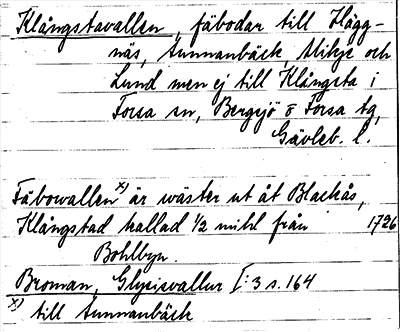 Klångstavallen, fäbodar till Hägg-
näs, Sunnanbäck, Utibje och
Lund men ej till Klångsta i
Forsa sn, Bergsjö o Forsa tg,
Gävleb. l.
Fäbowallen x) är wäster ut åt Blackås,
Klångstad kallad 1/2 mihl från 1726
Bohlbyn.
Broman, Glysisvallur I:3 s. 164
x) till Sunnanbäck